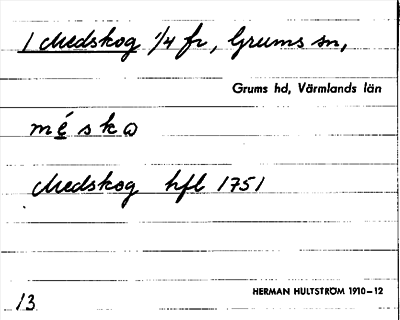 1 Medskog 1/4 fr, Grums sn,
Grums hd, Värmlands län
méska
Medskog hfl 1751
HERMAN HULTSTRÖM 1910–12
13